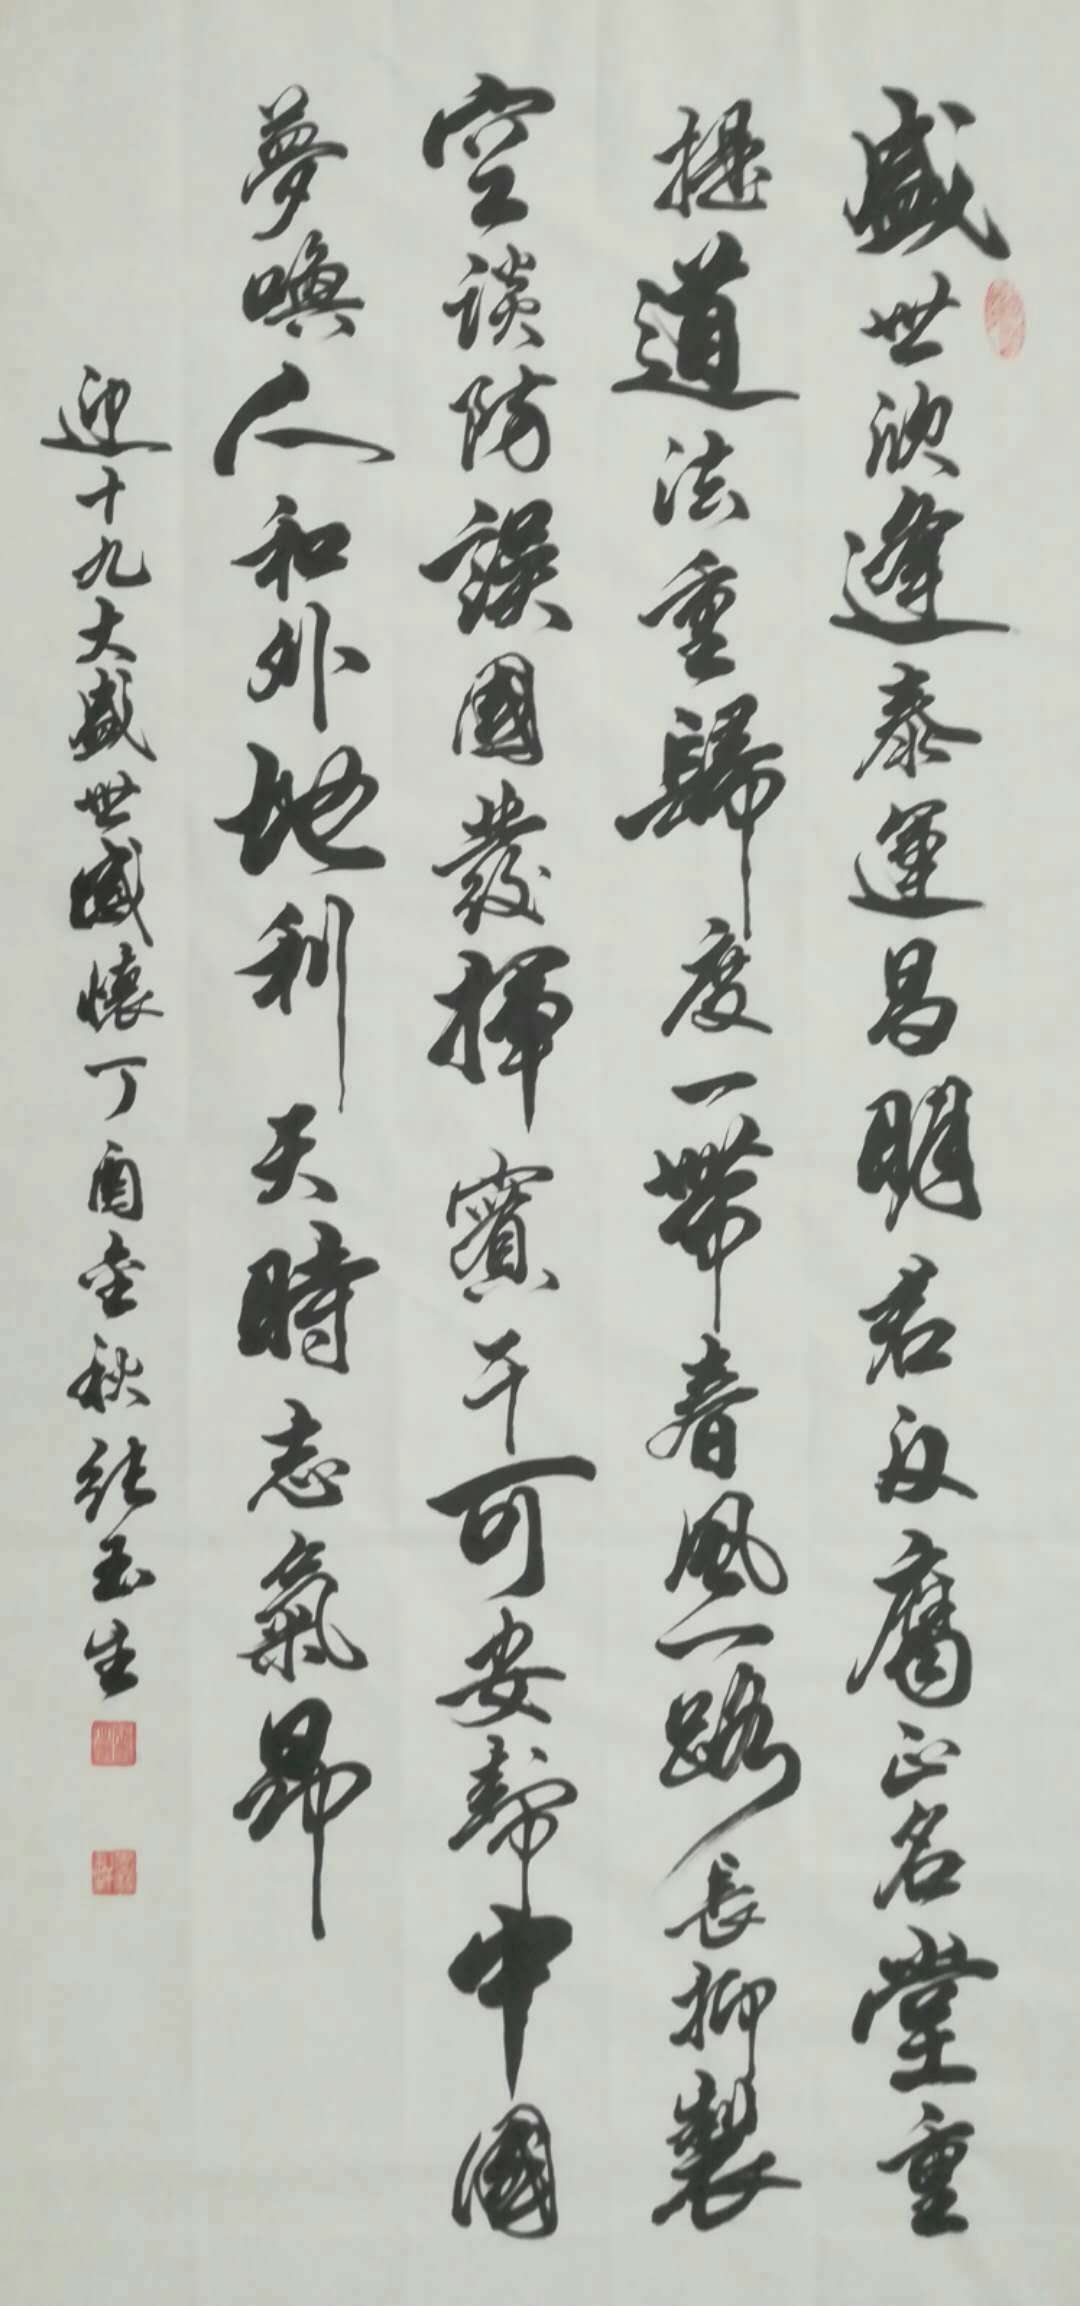 盛世欣逢泰運昌明君反腐正名堂重
提道法重歸度一帶春風一路長抑製
空談防誤國發揮實干可安邦中國
夢喚人和外地利天時志氣昂
迎十九大盛世感懷丁酉金秋張玉生